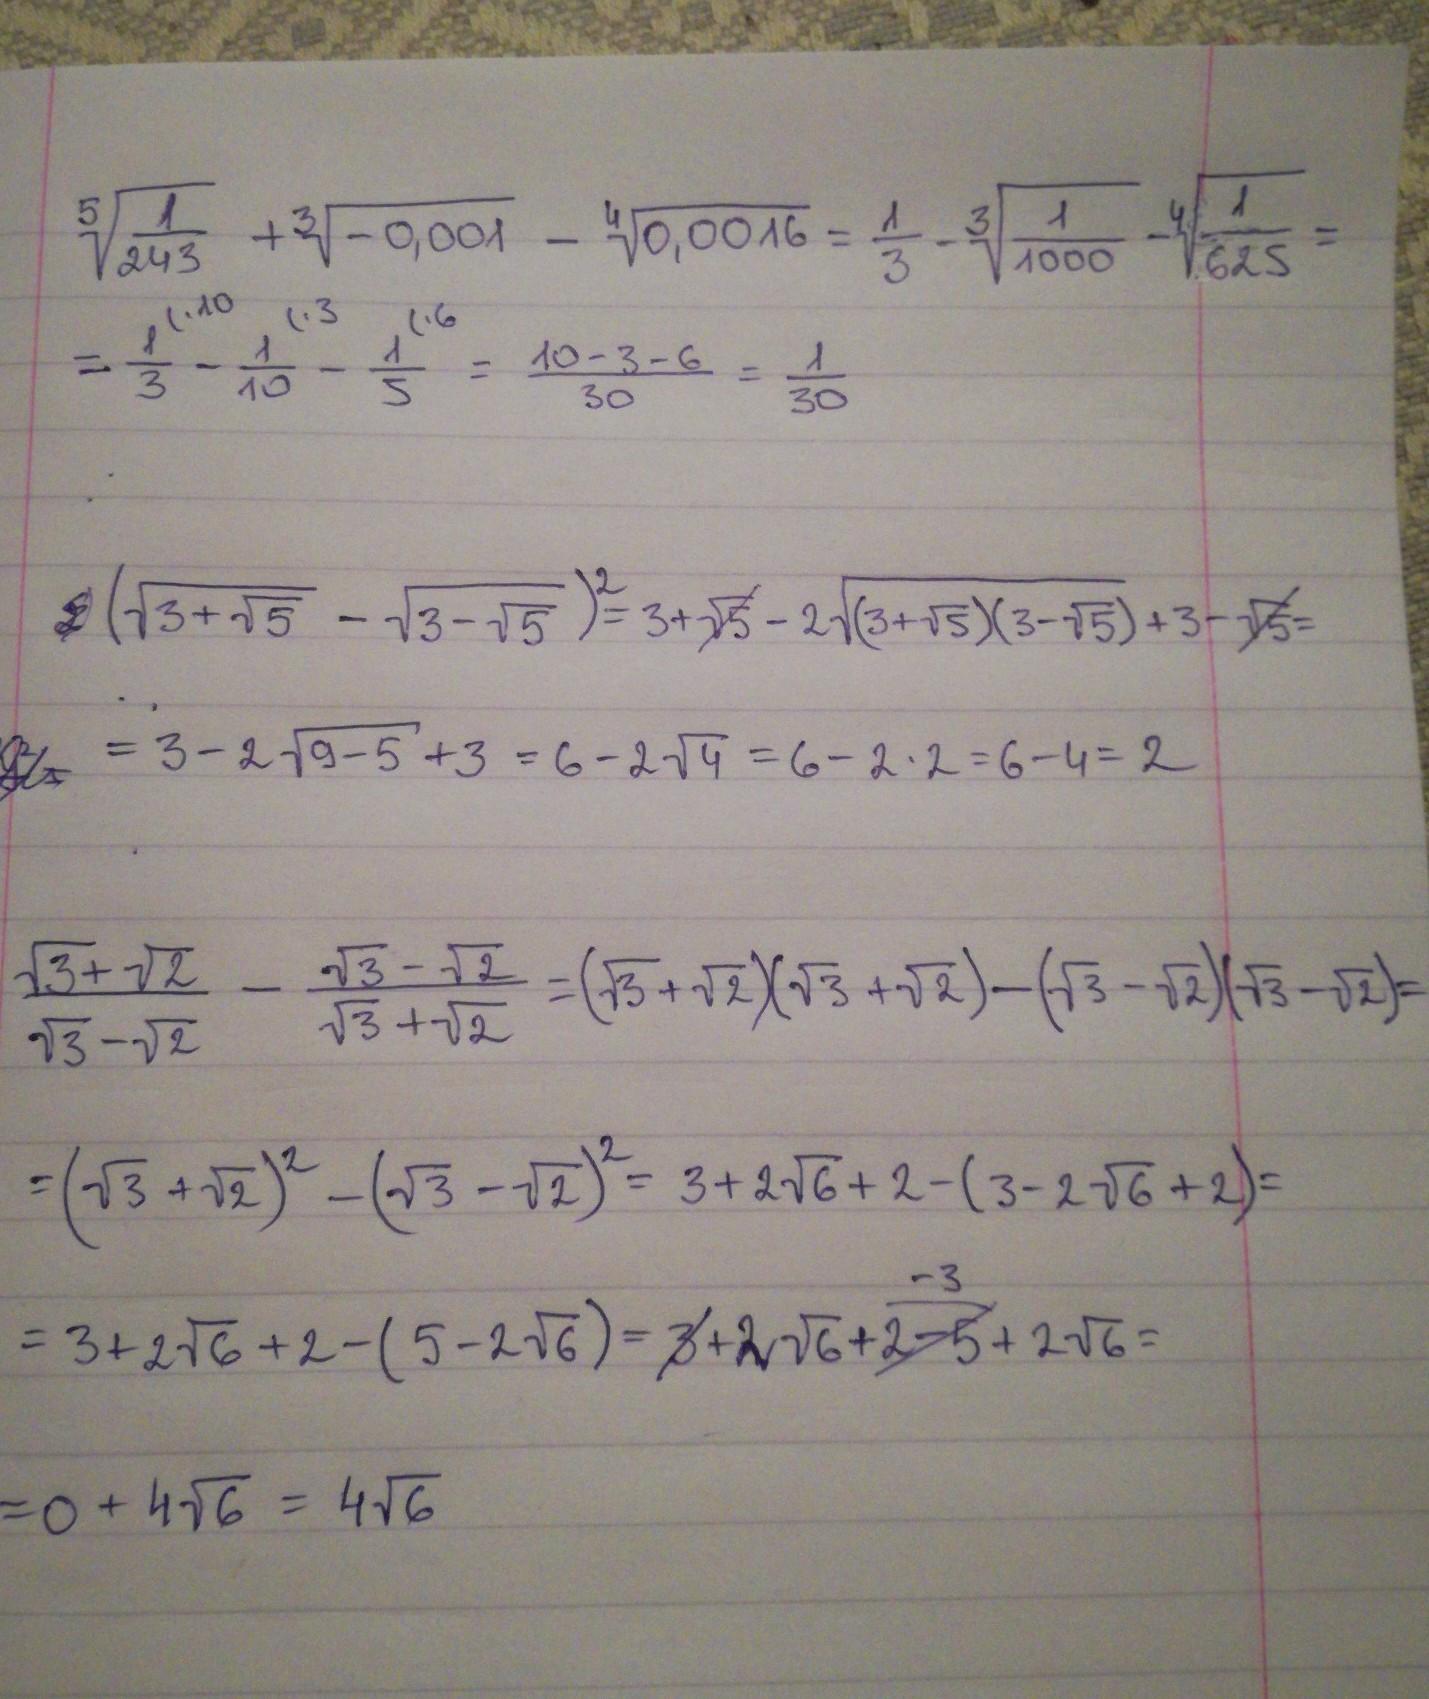 ⁵√(1/243) + ³√(-0,001) - ⁴√(0,0016) = 1/3 - ³√(1/1000) - ⁴√(1/625) =
= 1/3 (·10 - 1/10 (·3 - 1/5 (·6 = (10-3-6)/30 = 1/30
(√(3+√5) - √(3-√5))² = 3+√5 - 2√((3+√5)(3-√5)) + 3 - √5 =
= 3 - 2√(9-5) + 3 = 6 - 2√4 = 6 - 2·2 = 6 - 4 = 2
(√3+√2)/(√3-√2) - (√3-√2)/(√3+√2) = (√3+√2)(√3+√2) - (√3-√2)(√3-√2) =
= (√3+√2)² - (√3-√2)² = 3+2√6+2-(3-2√6+2) =
-3
= 3+2√6+2-(5-2√6) = 3+2√6+2-5+2√6 =
= 0 + 4√6 = 4√6